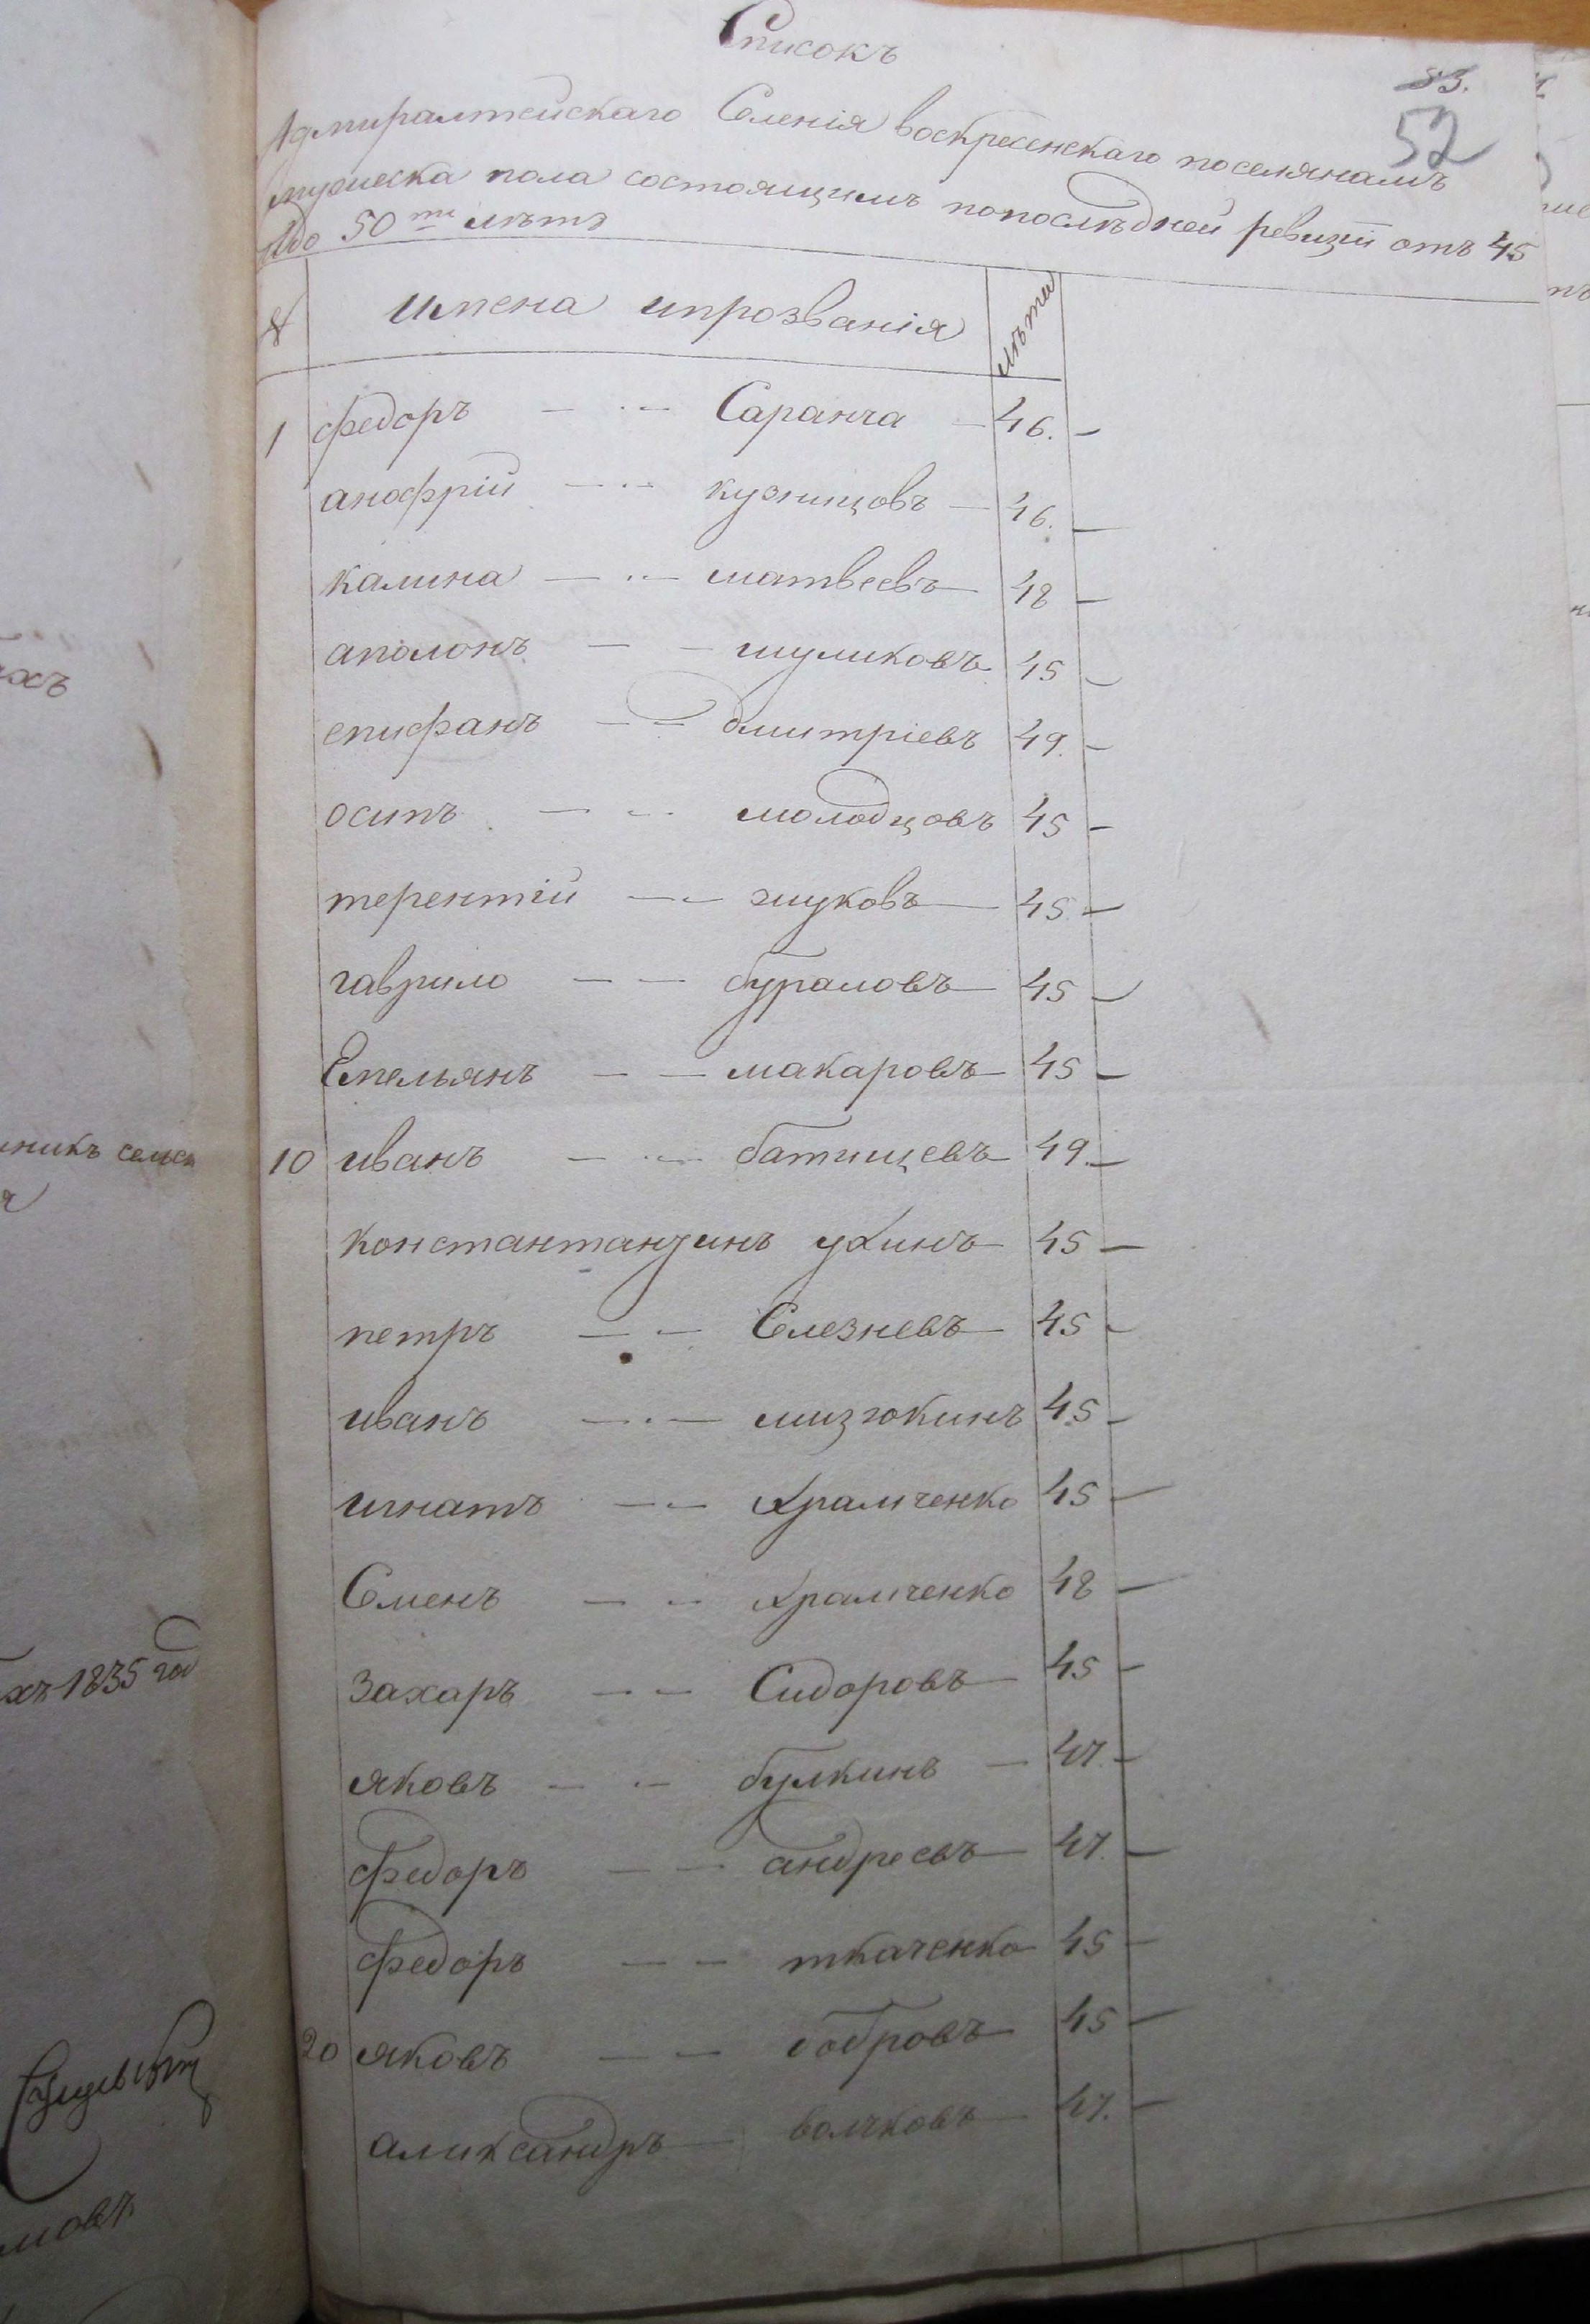 Списокъ
53.
52
Адмиралтейскаго Селенія воскресенскаго поселянамъ
мужеска пола состоящимъ попослѣдней ревизіи отъ 45
до 50ти лѣтъ
№ имена ипрозванія лѣта
1 федоръ — Саранча — 46. —
анофрій — кузницовъ — 46. —
калина — матвеевъ — 48 —
аполонъ — шуликовъ 45 —
епифанъ — дмитріевъ 49. —
осипъ — молодцовъ 45 —
терентій — жуковъ — 45 —
гаврило — бураловъ — 45 —
Емельянъ — макаровъ — 45 —
10 иванъ — батищевъ — 49. —
константантинъ ухинъ — 45 —
петръ — Селезневъ — 45 —
иванъ — мизюкинъ 45 —
игнатъ — храмченко 45 —
Семенъ — храмченко 48 —
Захаръ — Сидоровъ — 45 —
яковъ — булкинъ — 47. —
Федоръ — андреевъ — 47. —
Федоръ — ткаченко 45 —
20 яковъ — бобровъ — 45 —
александръ — волчковъ — 47. —
ахъ
никъ сельск
хъ 1835 год